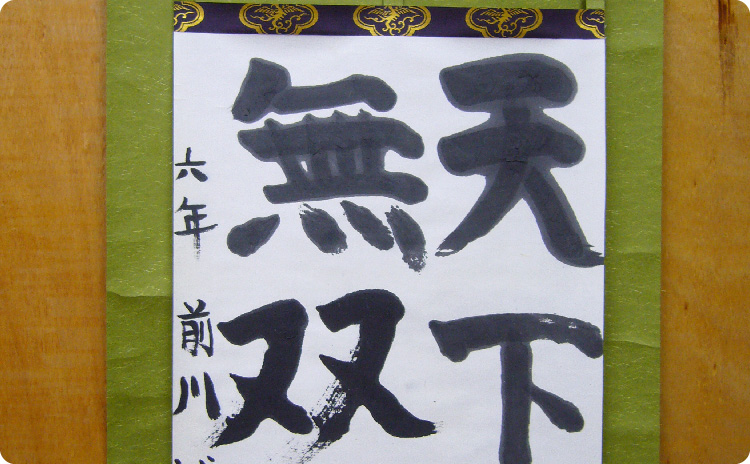 天下
無双
六年 前川